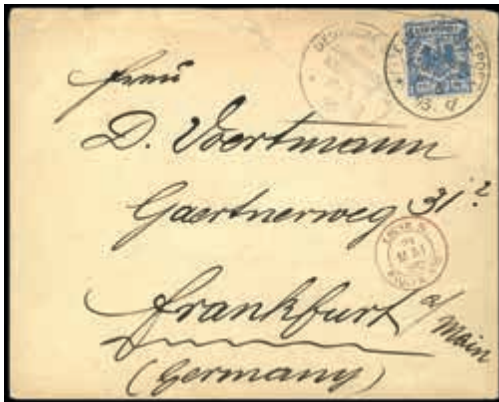 Frau
D. Voertmann
Gaertnerweg 31 2
Frankfurt a/Main
(Germany)